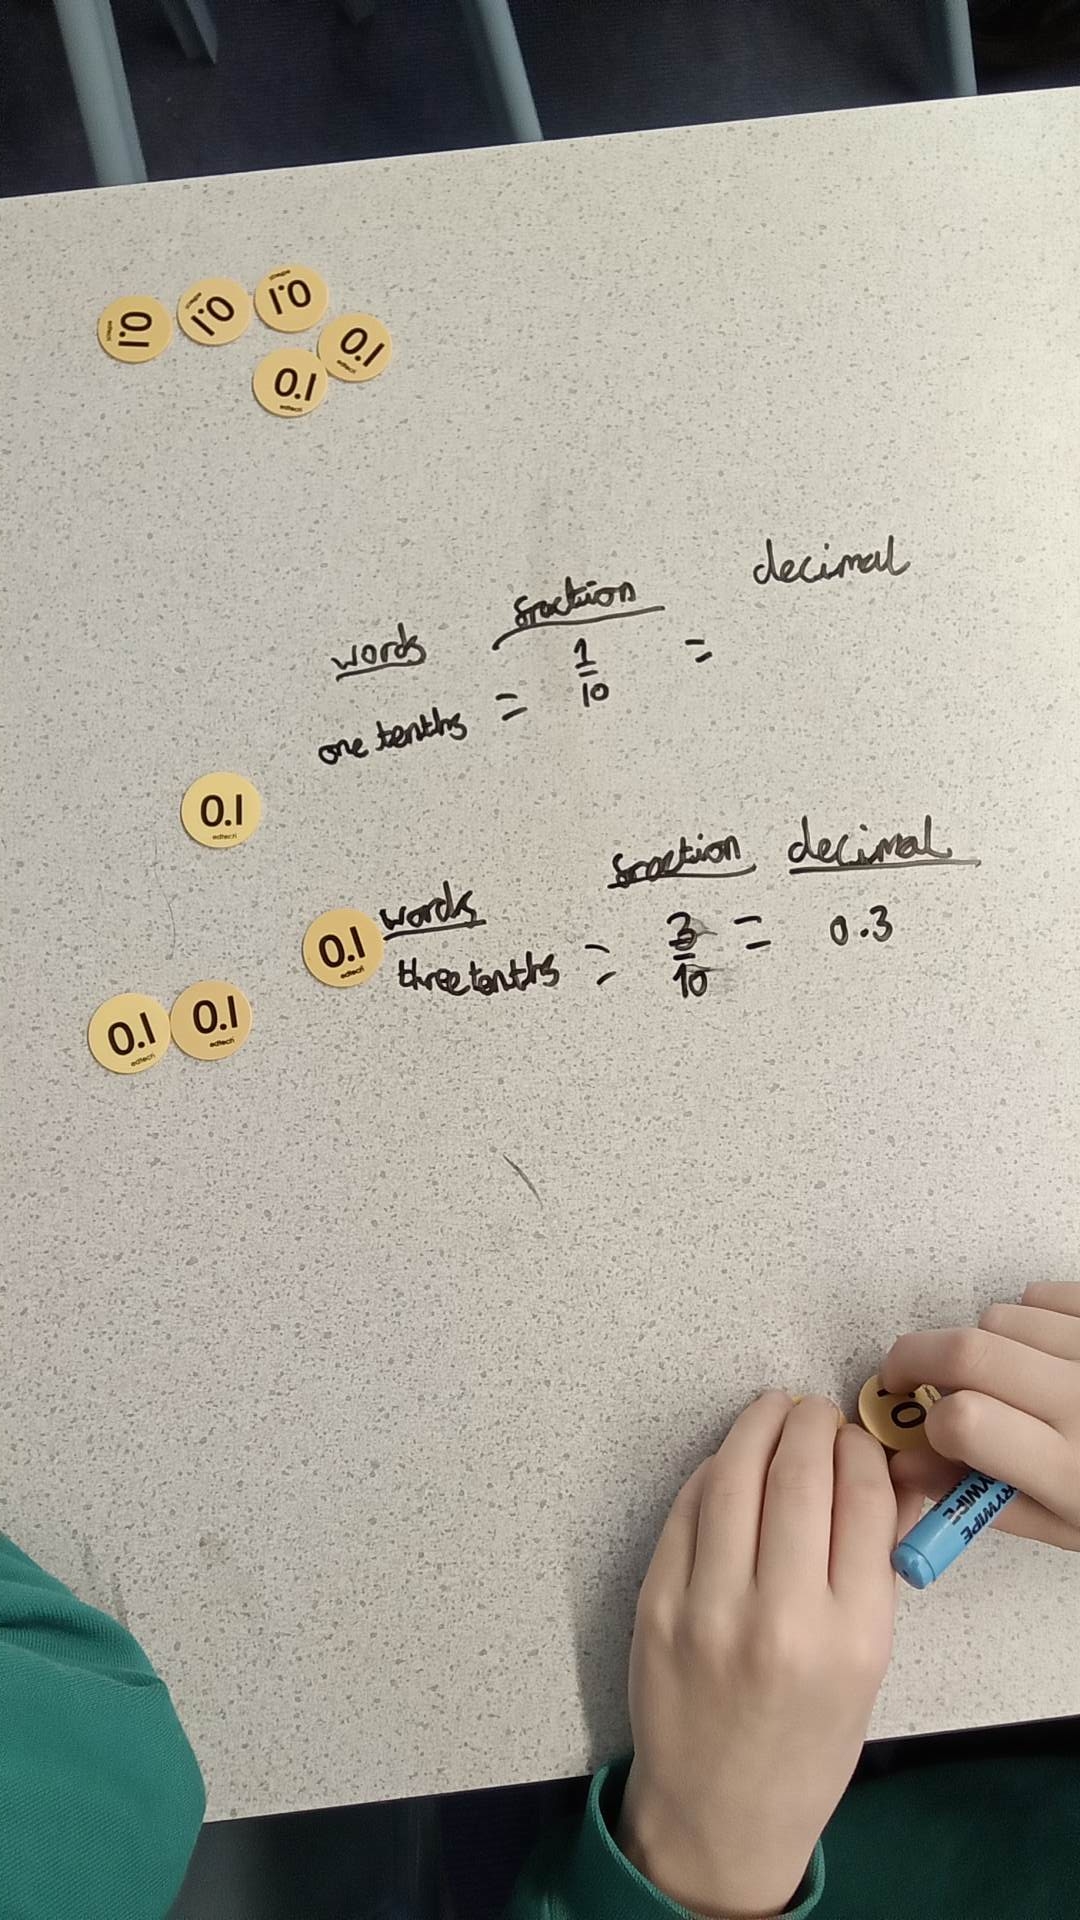 0.1
0.1
0.1
0.1
0.1
edtech
decimal
fraction
words
1
=
10
one tenths =
0.1
edtech
fraction decimal
words
0.1
edtech
three tenths = 3/10 = 0.3
0.1
edtech
0.1
edtech
0.
DRYWIPE